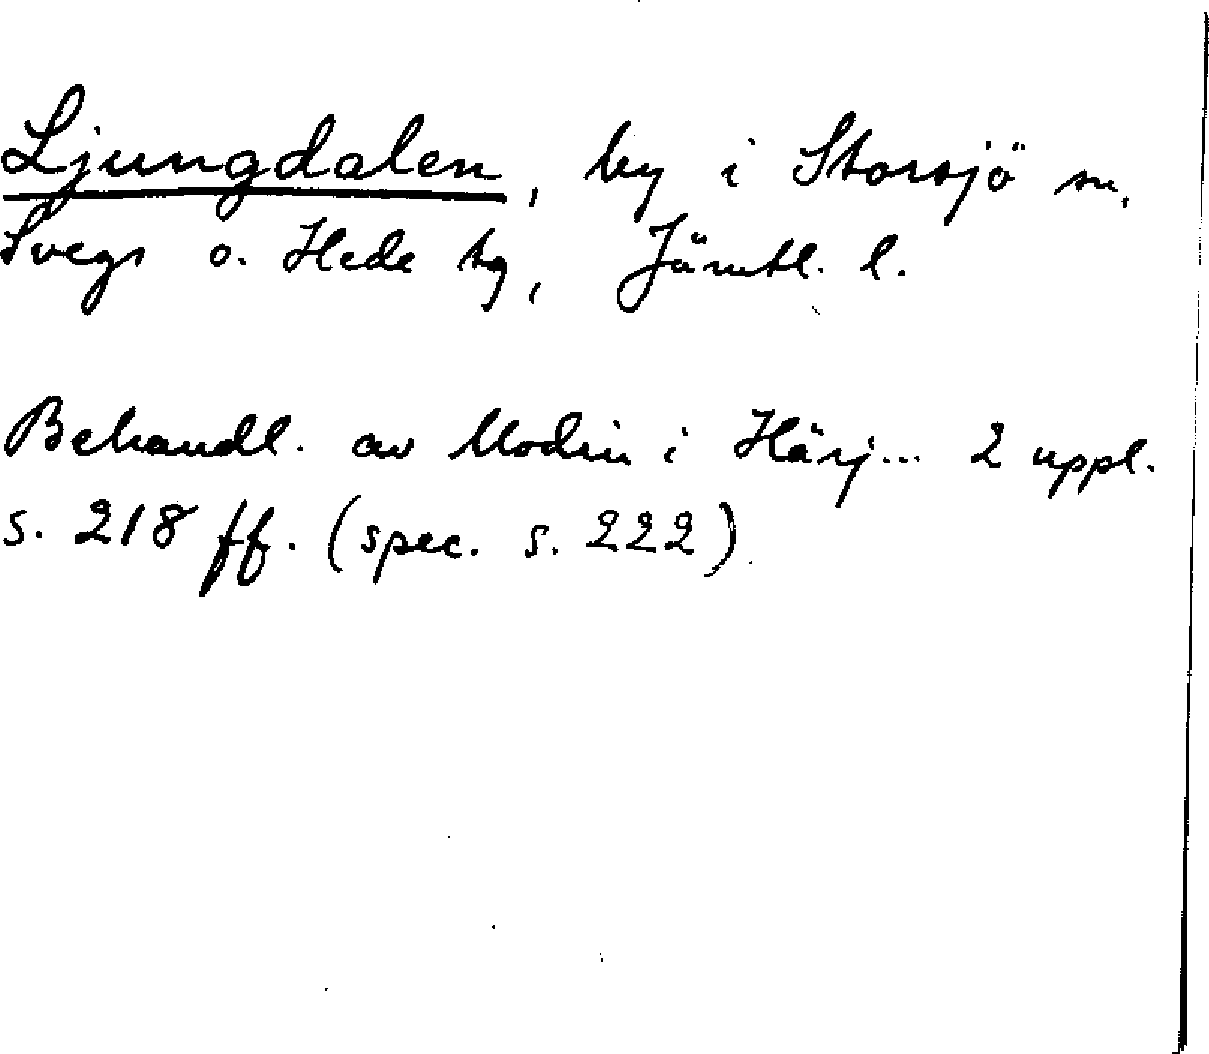 Ljungdalen, by i Storsjö sn,
Svegs o. Hede tg, Jämtl. l.
Behandl. av Modin i Härj... 2 uppl.
s. 218 ff. (spec. s. 222)